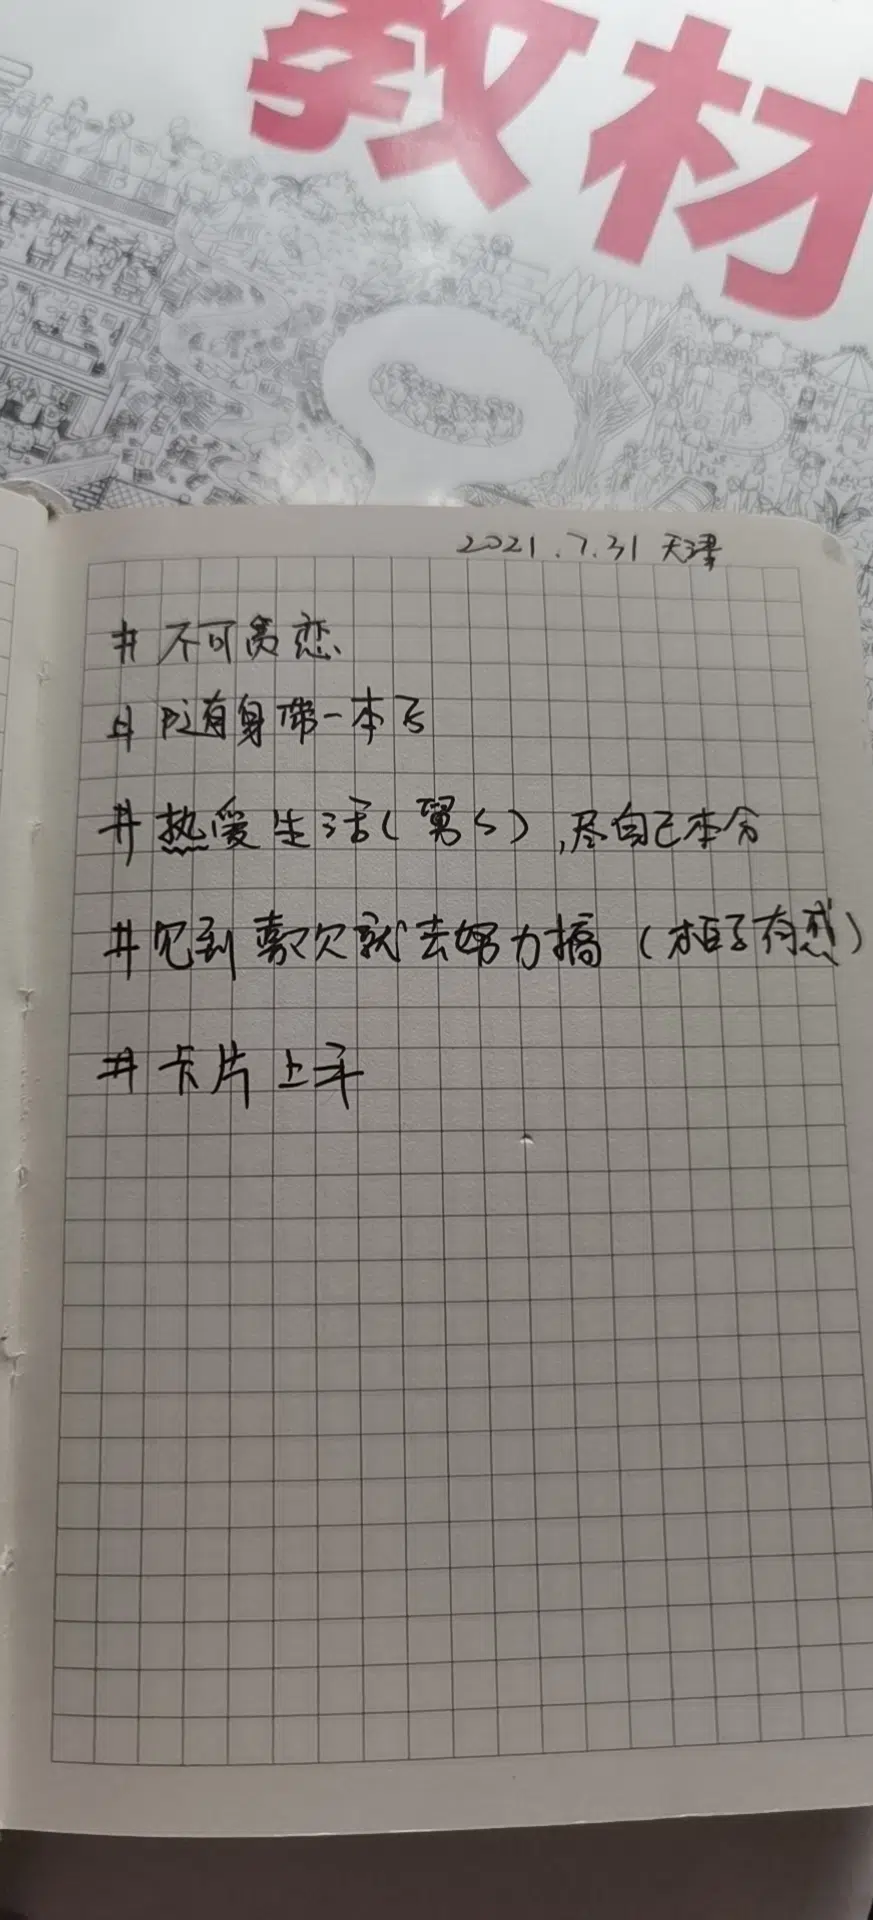 教材
2021.7.31 天津
# 不可贪恋
# 随身带一本
# 热爱生活( ),尽自己本分
# 见到喜欢就去努力搞(有感)
# 卡片上